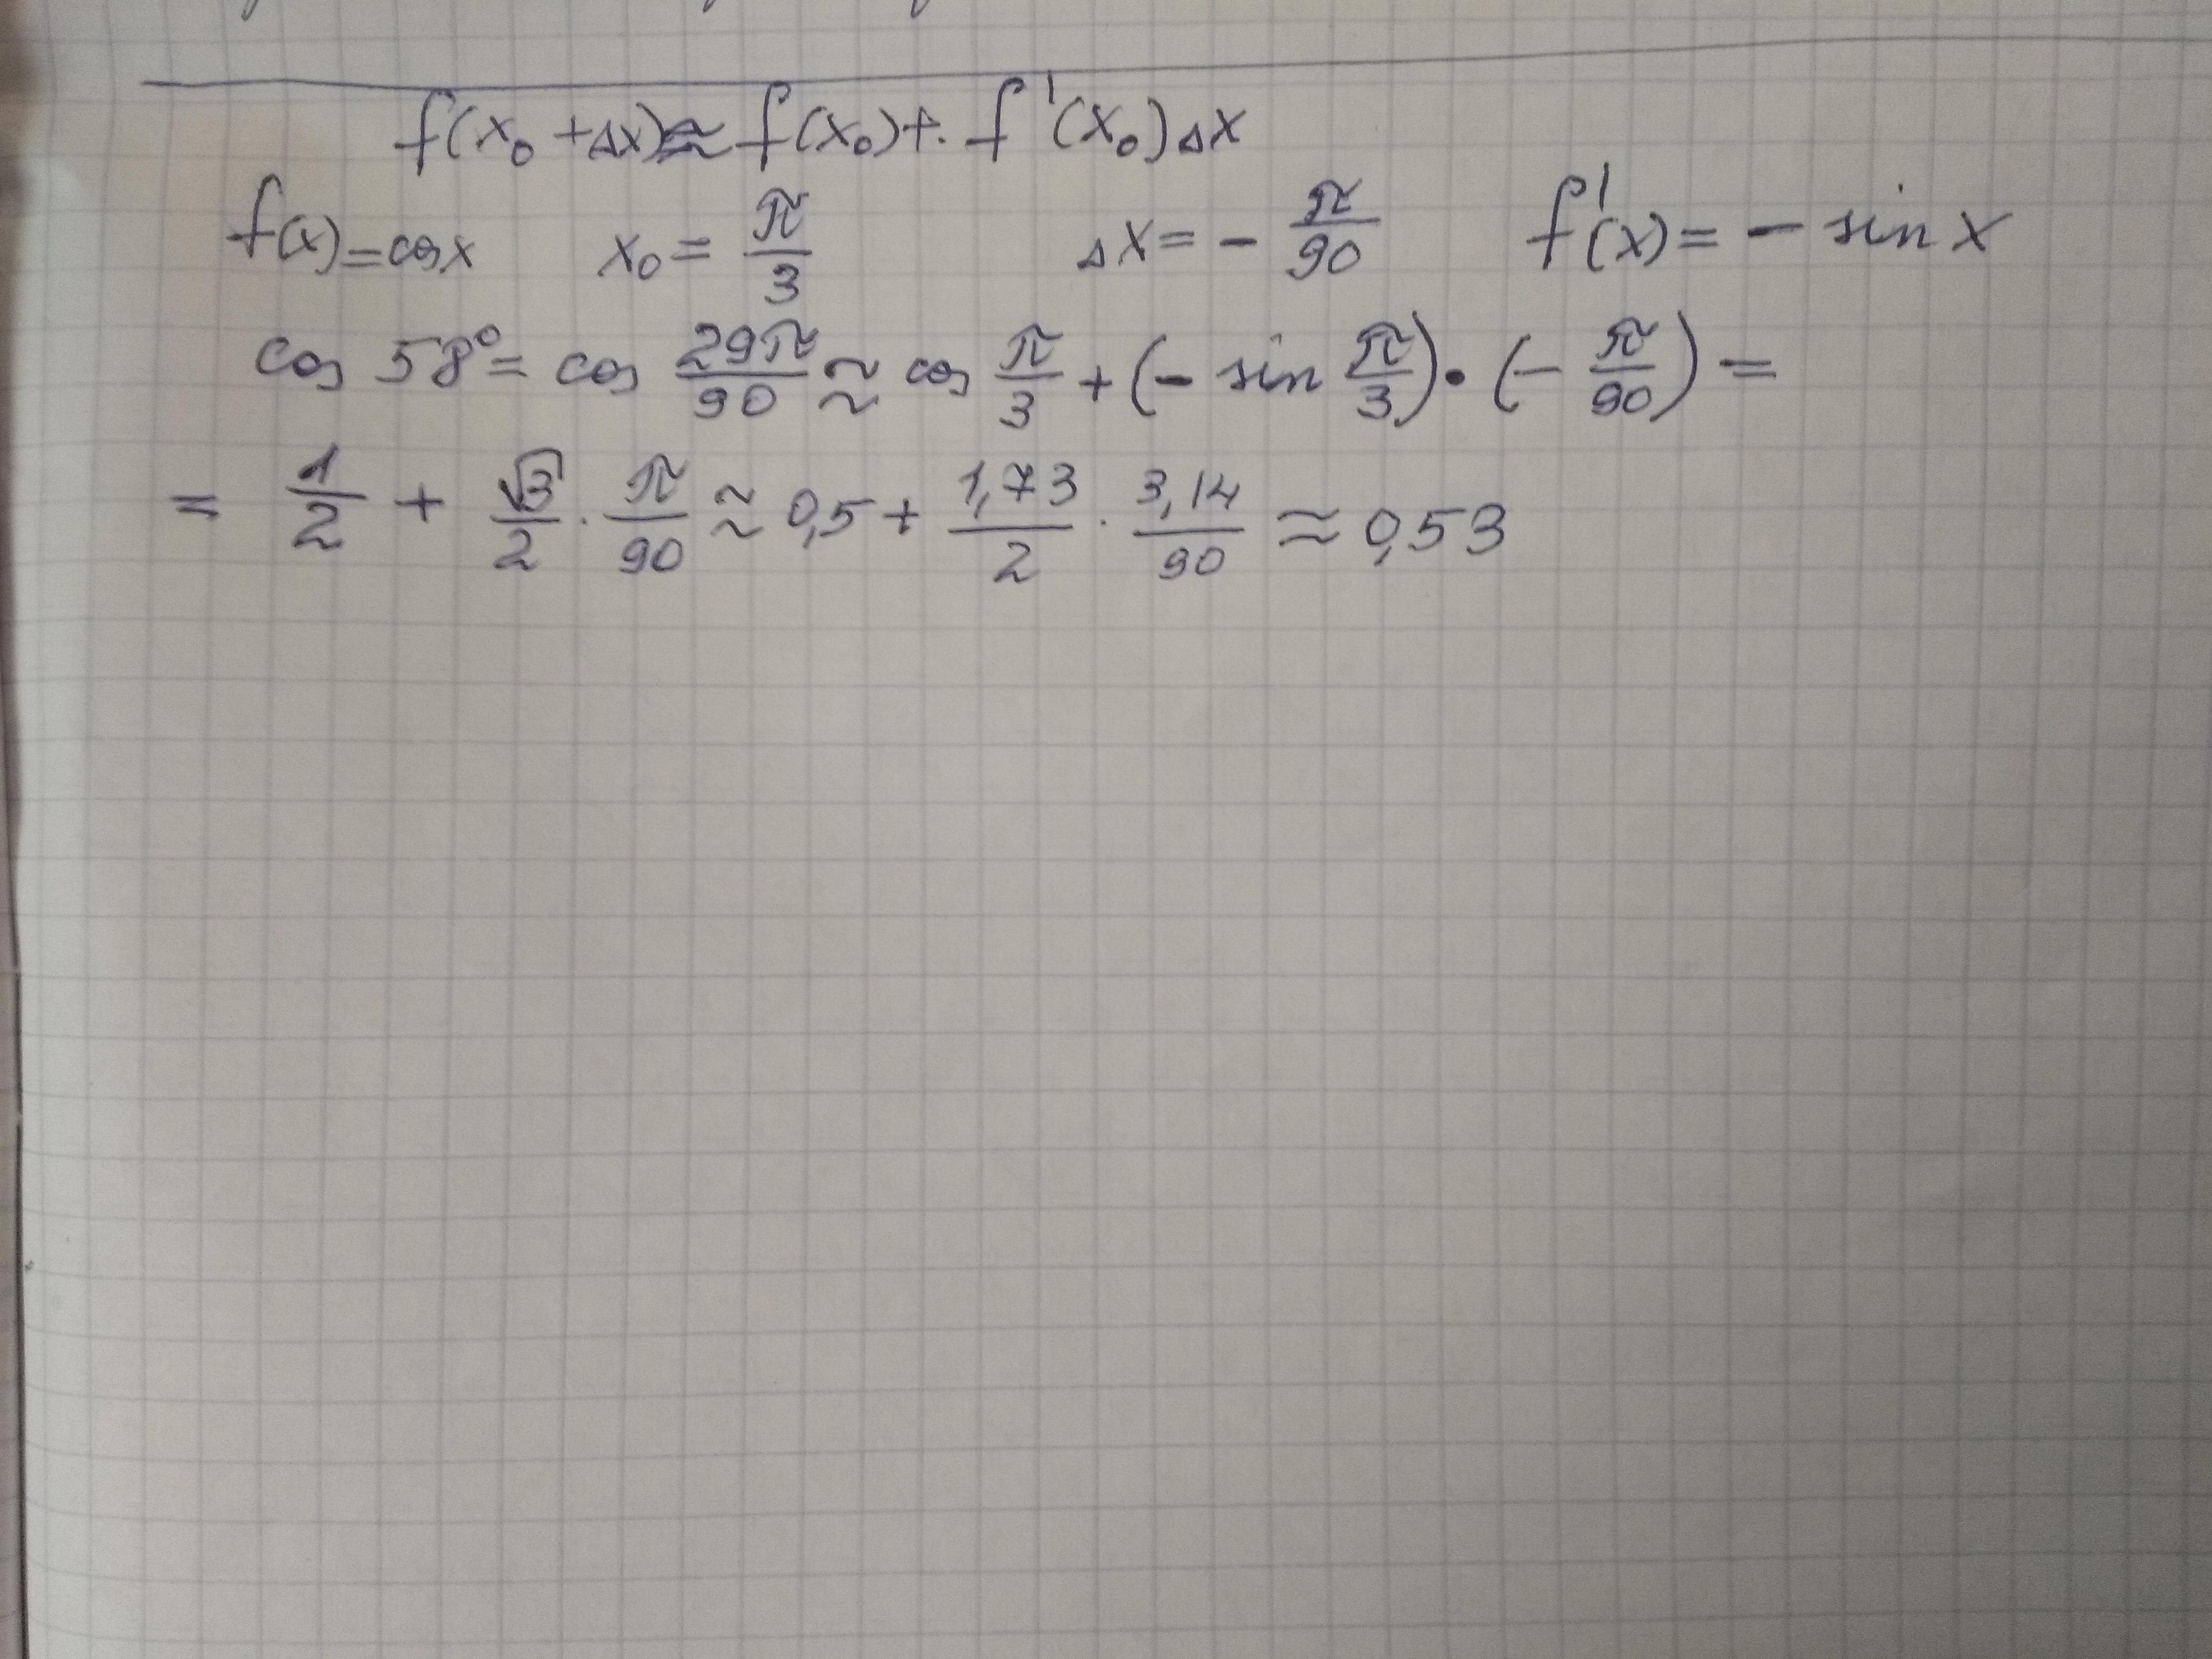 f(x₀ + Δx) ≈ f(x₀) + f'(x₀) Δx
f(x) = cos x x₀ = π/3 Δx = - π/90 f'(x) = - sin x
cos 58° = cos 29π/90 ≈ cos π/3 + (- sin π/3) · (- π/90) =
= 1/2 + √3/2 · π/90 ≈ 0,5 + 1,73/2 · 3,14/90 ≈ 0,53